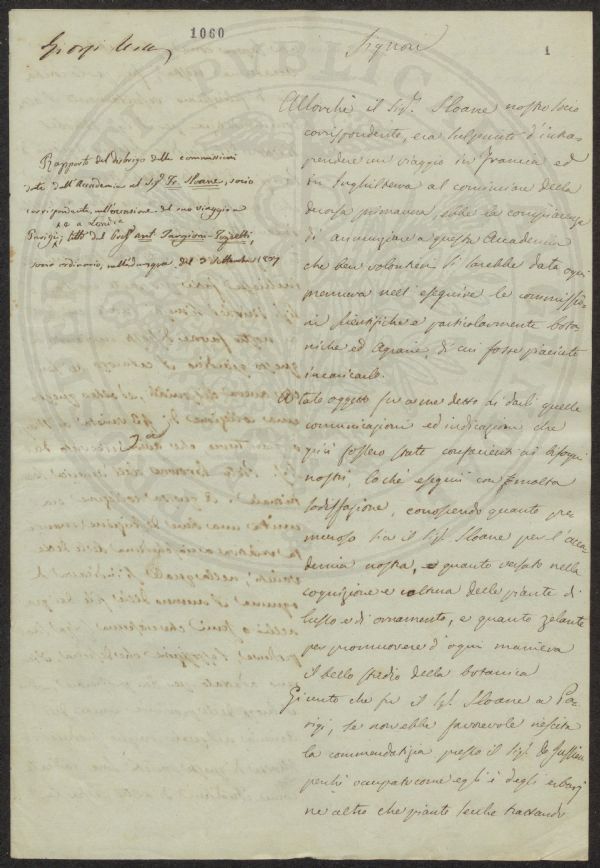 1060
1
Signori
Rapporto del disbrigo delle commissioni
date dall'Accademia al Sigr. Fr. Sloane, socio
corrispondente, nell'occasione del suo viaggio a
Parigi, e a Londra
letto dal Prof. Ant. Targioni-Tozzetti,
socio ordinario, nell'adunanza del 3 Settembre 1837
Allorchè il Sigr. Sloane nostro socio
corrispondente, era sul punto d'intra-
prendere un viaggio in Francia ed
in Inghilterra al cominciare della
decorsa primavera, ebbe la compiacenza
di annunziare a questa Accademia
che ben volentieri si sarebbe data ogni
premura nell'eseguire le commissio-
ni scientifiche e particolarmente bota-
niche ed Agrarie, di cui fosse piaciuto
incaricarlo.
A tale oggetto fu a me detto di darli quelle
comunicazioni ed indicazioni che
più fossero state confacienti ai bisogni
nostri, lochè eseguii con molta
sodisfazione, conoscendo quanto pre-
muroso sia il Sigr. Sloane per l'acca-
demia nostra, e quanto versato nella
cognizione e coltura delle piante di
lusso e di ornamento, e quanto zelante
per promuovere d'ogni maniera
il bello studio della botanica
Giunto che fu il Sigr. Sloane a Pa-
rigi, se non ebbe favorevole riescita
la commendatizia presso il Sigr. de Jussieu
perchè occupato come egli è degli erbarj
nè altro che piante secche trattando